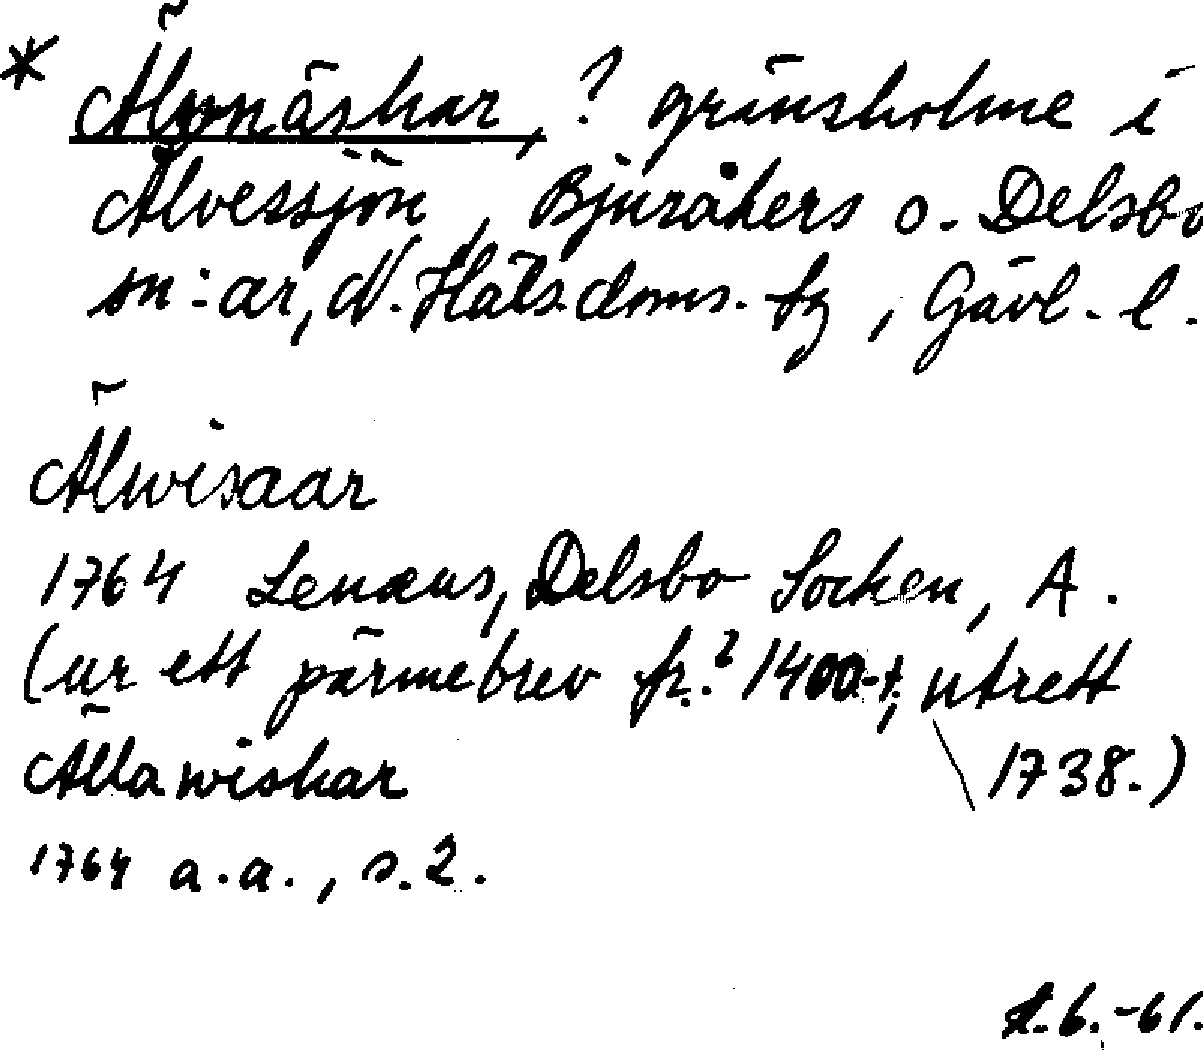 * Älvnäskar, ? gränsholme i
Älvessjön, Bjuråkers o. Delsbo
sn:ar, N. Häls. doms. fg, Gävl. l.
Älwisaar
1764 Lenæus, Delsbo Socken, A.
(ur ett pärmebrev fr.? 1400-t, utrett
1738.)
Ällawiskar
1764 a.a., s. 2.
6.-61.